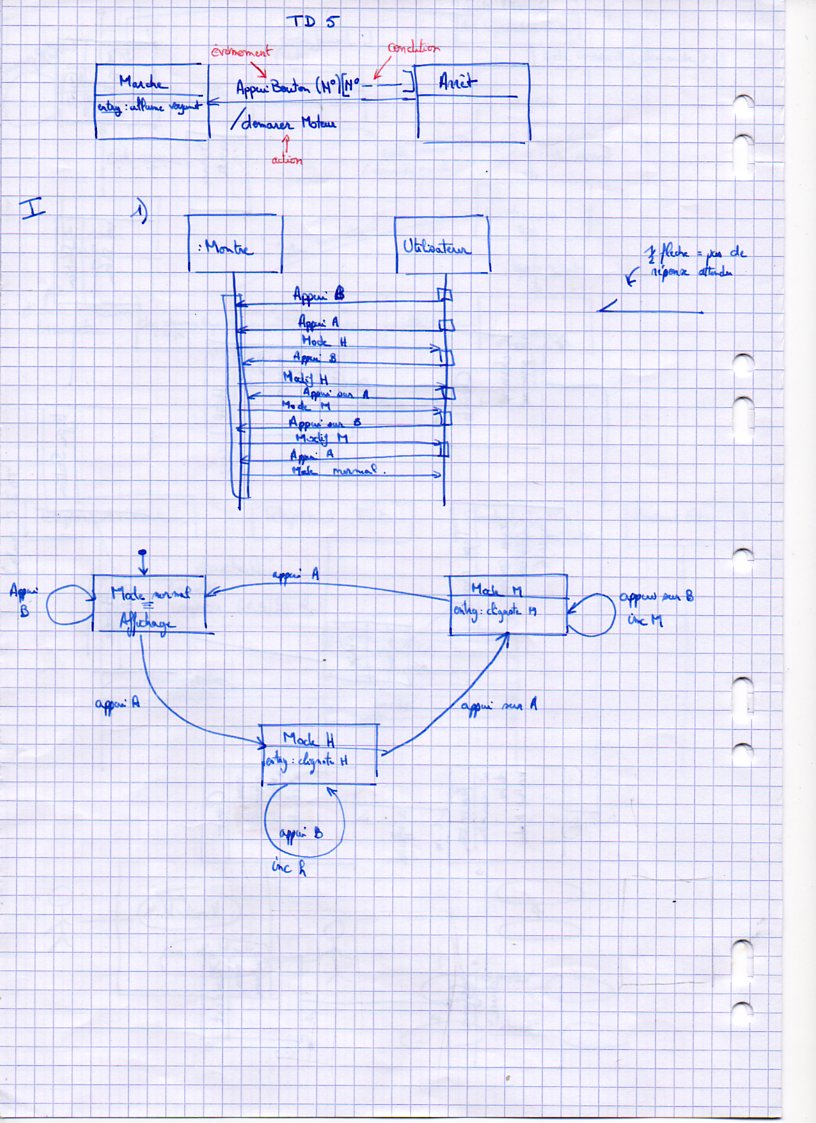 TD 5
évènement
condition
Marche
AppuiBouton (N°)[N° — — ]
Arrêt
entry : allume voyant
/démarer Moteur
action
I
1)
:Montre
Utilisateur
½ flèche = pas de
réponse attendue
Appui B
Appui A
Mode H
Appui B
Modif H
Appui sur A
Mode M
Appui sur B
Modif M
Appui A
Mode normal.
appui A
Appui
B
Mode normal
Affichage
Mode M
entry : clignote M
appui sur B
inc M
appui A
appui sur A
Mode H
entry : clignote H
appui B
inc h